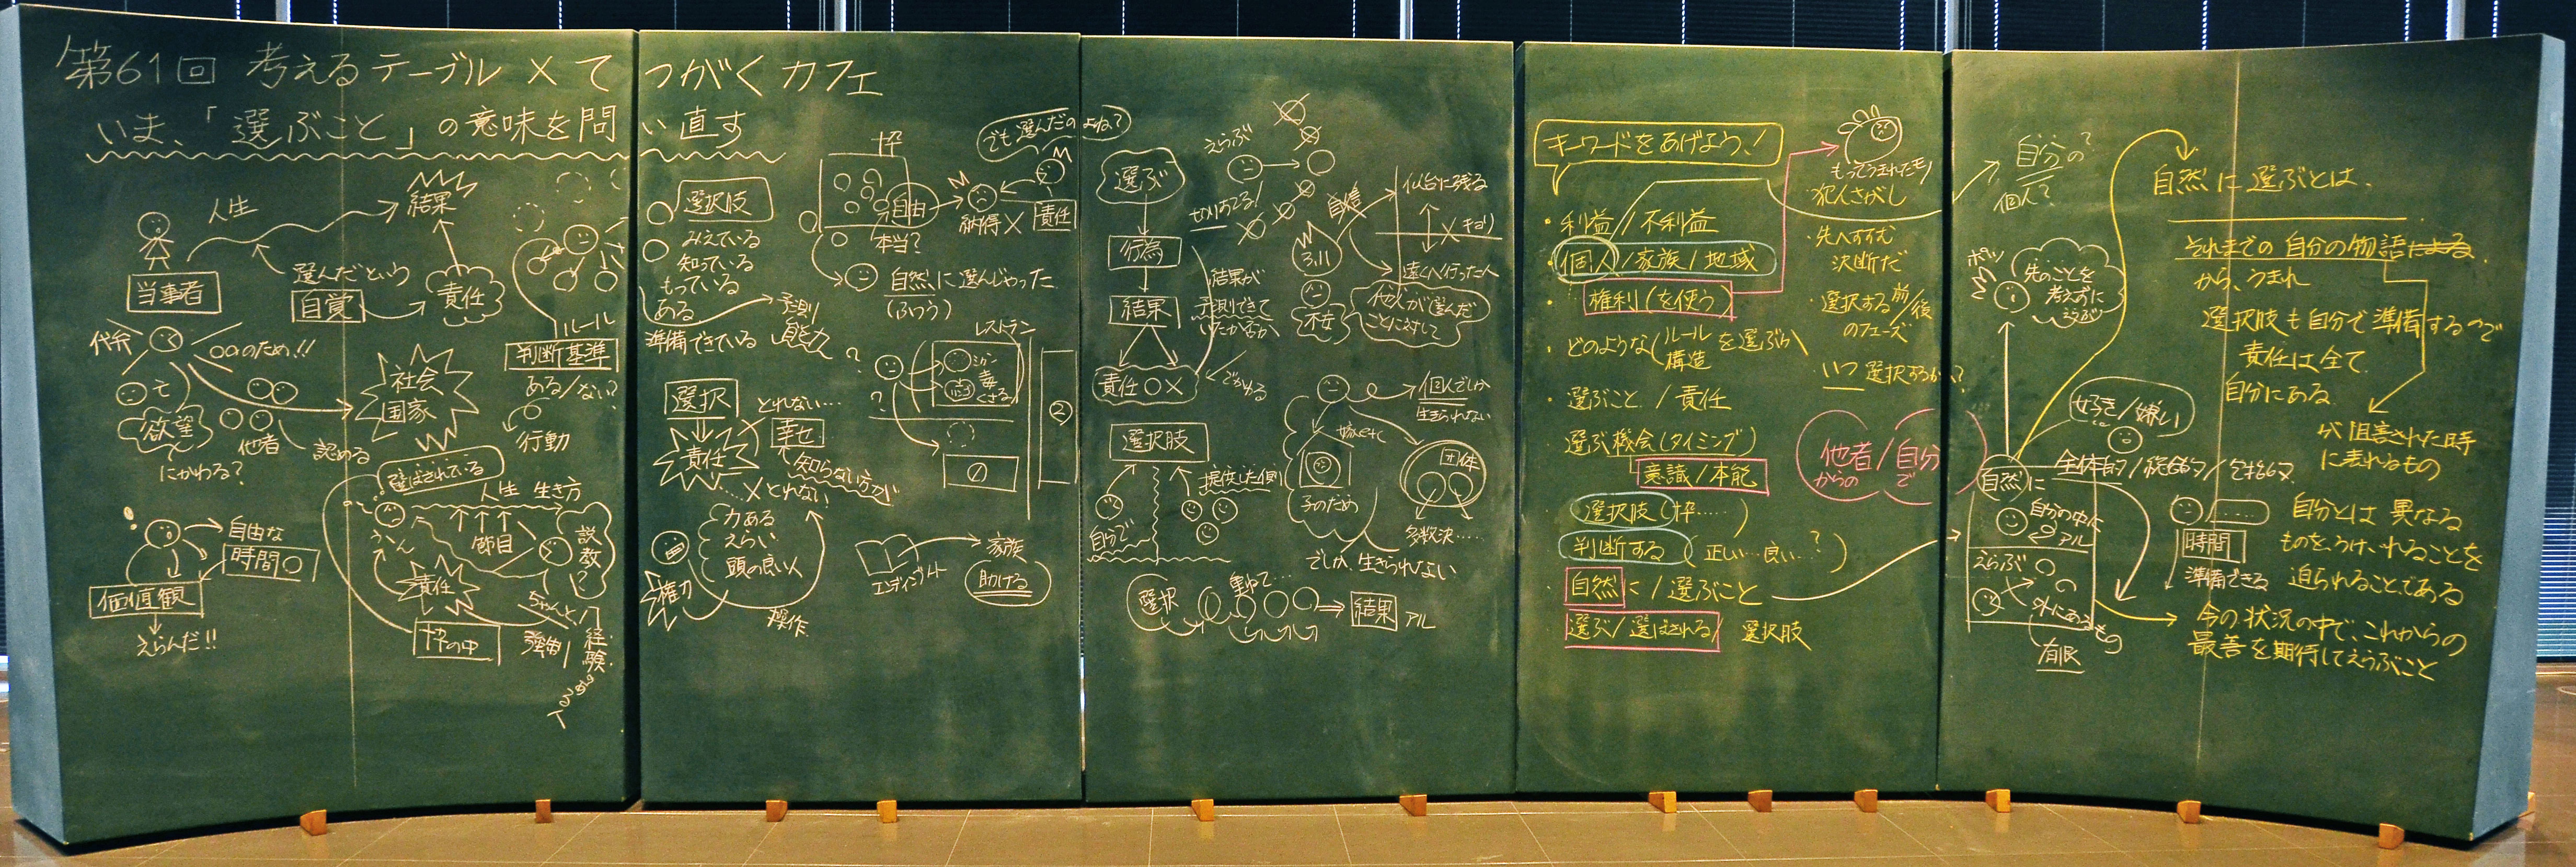 第61回 考えるテーブル×てつがくカフェ
いま、「選ぶこと」の意味を問い直す
人生
結果
当事者
選んだという
自覚
責任
ルール
判断基準
ある/ない?
行動
代弁
○○のため!!
欲望
にかわる?
他者
認める
社会
国家
選ばされている
人生 生き方
節目
説教?
責任
枠の中
強制
経験
自由な
時間○
価値観
えらんだ!!
選択肢
みえている
知っている
もっている
ある
準備できている
予測
能力
枠
自由
本当?
自然に選んじゃった
(ふつう)
でも選んだのよね?
納得×
責任
レストラン
毒
くさる
②
①
選択
とれない…
責任
幸せ
知らない方が
…×とれない
力ある
えらい
頭の良い人
権力
操作
エンディングノート
家族
助ける
選ぶ
行為
結果
責任○×
結果が
予測できて
いたかどうか
でかわる
えらぶ
切りすてる!
3.11
不安
仙台に残る
遠くへ行った人
他人が選んだ
ことに対して
選択肢
自分で
提供した側
個人でしか
生きられない
子のため
団体
多数決……
でしか、生きられない
選択
重ねて…
結果
アル
キーワードをあげよう!
・利益/不利益
・個人/家族/地域
・権利(を使う)
・どのような(ルール
構造
を選ぶか
・選ぶこと/責任
・選ぶ機会(タイミング)
意識/本能
・選択肢(枠……)
・判断する(正しい…良い…?)
・自然に/選ぶこと
・選ぶ/選ばされる/選択肢
もってうまれたモノ
・犯人さがし
・先へすすむ
決断だ
・選択する前/後
のフェーズ
・いつ選択するか?
他者/自分
からの
で
自分の?
個人?
ポッ
先のことを
考えずに
えらぶ
好き/嫌い
自然に
自分の中に
アル
えらぶ
外にあるもの
有限
時間
準備できる
自然に選ぶとは、
それまでの自分の物語による
から、うまれ
選択肢も自分で準備するので
責任は全て
自分にある
が阻害された時
に表れるもの
自分とは異なる
ものを、うけ、れることを
迫られることである
今の状況の中で、これからの
最善を期待してえらぶこと